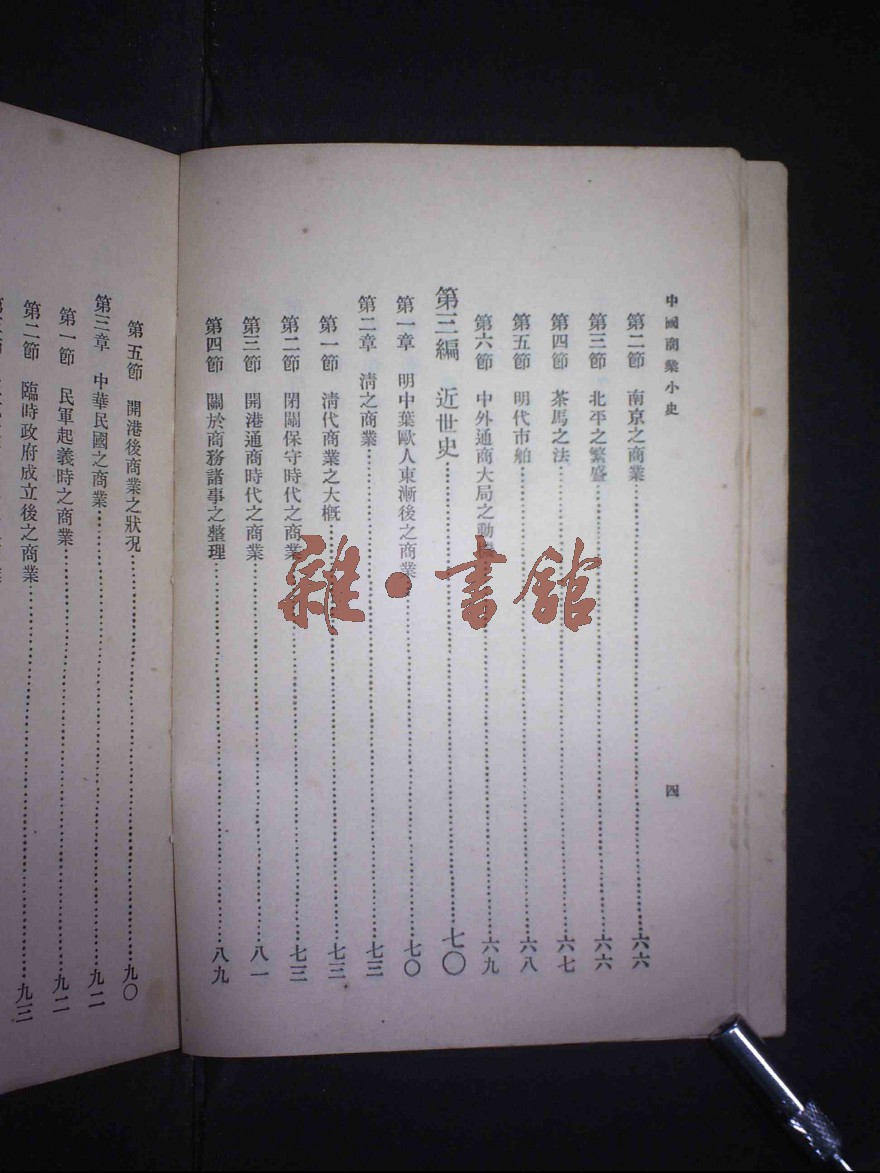 中國商業小史
四
第二節 南京之商業……六六
第三節 北平之繁盛……六六
第四節 茶馬之法……六七
第五節 明代市舶……六八
第六節 中外通商大局之動……六九
第三編 近世史……七〇
第一章 明中葉歐人東漸後之商業……七〇
第二章 清之商業……七三
第一節 清代商業之大概……七三
第二節 閉關保守時代之商業……七三
第三節 開港通商時代之商業……八一
第四節 關於商務諸事之整理……八九
第五節 開港後商業之狀況……九〇
第三章 中華民國之商業……九二
第一節 民軍起義時之商業……九二
第二節 臨時政府成立後之商業……九三
雜·書館